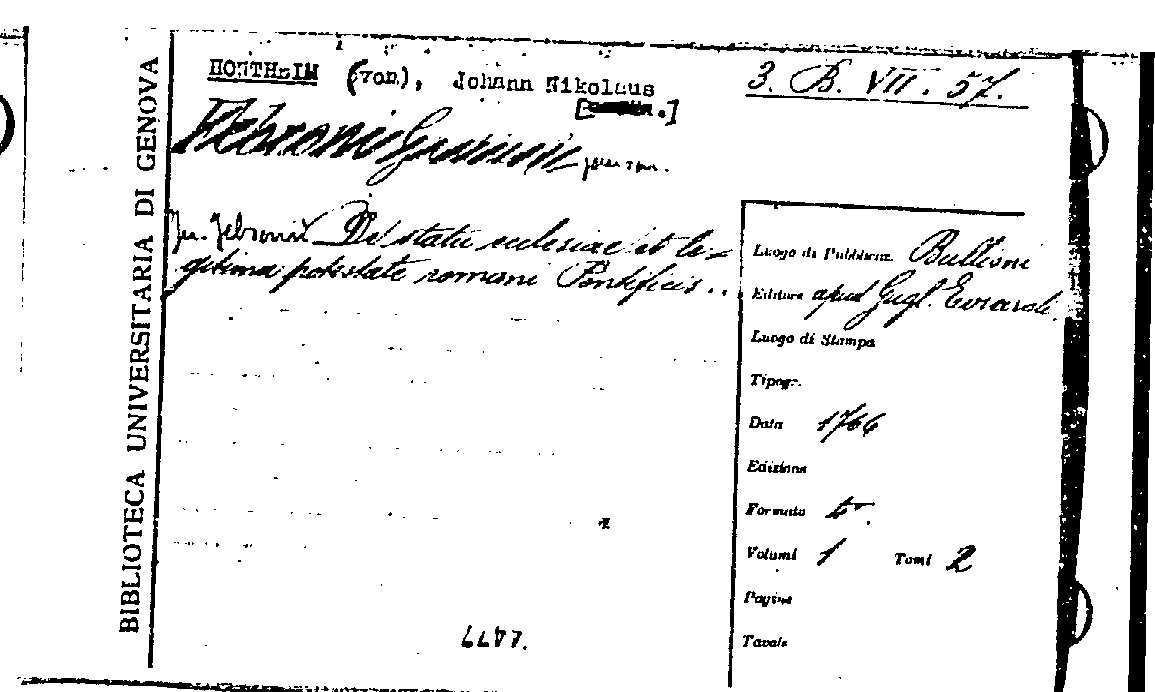 BIBLIOTECA UNIVERSITARIA DI GENOVA
HONTHEIM (von), Johann Nikolaus
3. B. VII. 57.
Febroni
Ju. Febronii De statu ecclesiae et le-
gitima potestate romani Pontificis..
Luogo di Pubblicaz. Bullioni
Editore apud Gugl. Evrardi.
Luogo di Stampa
Tipogr.
Data 1766
Edizione
Formato
Volumi 1 Tomi 2
Pagine
Tavole